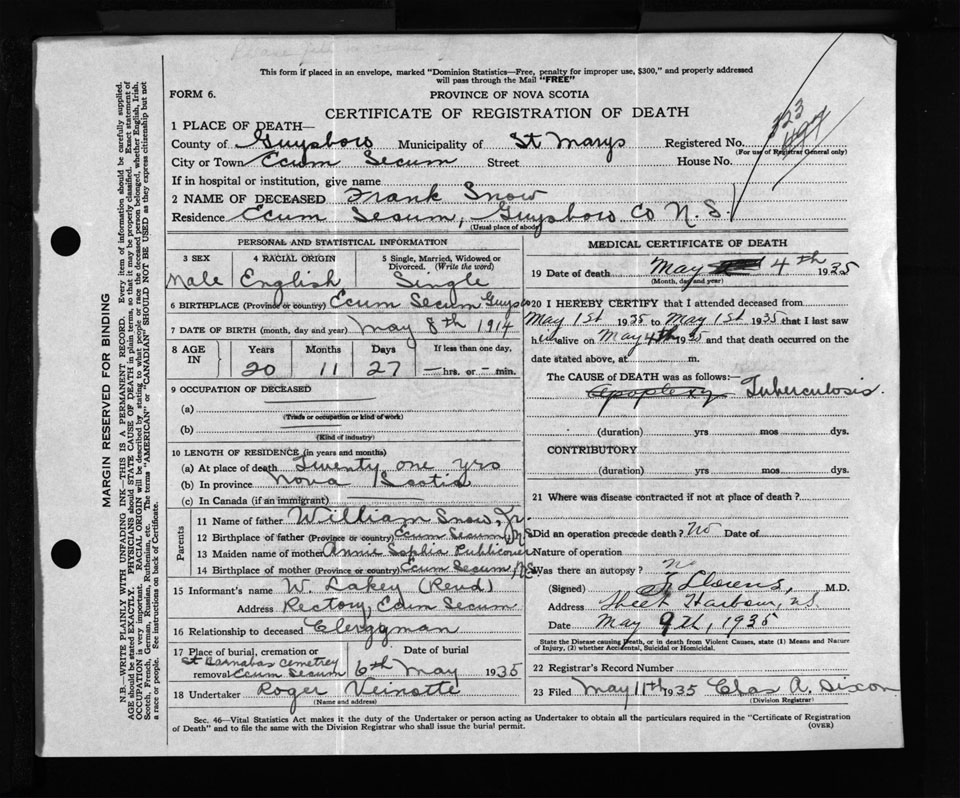 This form if placed in an envelope, marked "Dominion Statistics—Free, penalty for improper use, $300," and properly addressed
will pass through the Mail "FREE"
FORM 6.
PROVINCE OF NOVA SCOTIA
CERTIFICATE OF REGISTRATION OF DEATH
1 PLACE OF DEATH—
County of Guysboro Municipality of St Marys Registered No.
(For use of Registrar General only)
City or Town Ecum Secum Street House No.
If in hospital or institution, give name
2 NAME OF DECEASED Frank Snow
Residence Ecum Secum, Guysboro Co N.S.
(Usual place of abode)
PERSONAL AND STATISTICAL INFORMATION
3 SEX 4 RACIAL ORIGIN 5 Single, Married, Widowed or
Divorced. (Write the word)
Male English Single
6 BIRTHPLACE (Province or country) Ecum Secum Guysbo
7 DATE OF BIRTH (month, day and year) May 8th 1914
8 AGE IN Years Months Days If less than one day,
20 11 27 — hrs. or — min.
9 OCCUPATION OF DECEASED
(a)
(Trade or occupation or kind of work)
(b)
(Kind of industry)
10 LENGTH OF RESIDENCE (in years and months)
(a) At place of death Twenty one yrs
(b) In province Nova Scotia
(c) In Canada (if an immigrant)
Parents
11 Name of father William Snow, Jr.
12 Birthplace of father (Province or country) Ecum Secum, N.S
13 Maiden name of mother Annie Sophia Publicover
14 Birthplace of mother (Province or country) Ecum Secum, N.S.
15 Informant's name W. Lakey (Revd)
Address Rectory, Ecum Secum
16 Relationship to deceased Clergyman
17 Place of burial, cremation or Date of burial
St Barnabas Cemetrey
removal Ecum Secum 6th May 1935
18 Undertaker Roger Veinotte
(Name and address)
MEDICAL CERTIFICATE OF DEATH
19 Date of death May 4th 1935
(Month, day and year)
20 I HEREBY CERTIFY that I attended deceased from
May 1st 1935 to May 1st 1935 that I last saw
him alive on May 4th 1935 and that death occurred on the
date stated above, at m.
The CAUSE of DEATH was as follows:—
Apoplexy Tuberculosis.
(duration) yrs mos dys.
CONTRIBUTORY
(duration) yrs mos dys.
21 Where was disease contracted if not at place of death?
Did an operation precede death? No Date of
Nature of operation
Was there an autopsy? No
(Signed) M.D.
Address Sheet Harbour, N.S.
Date May 9th, 1935
State the Disease causing Death, or in death from Violent Causes, state (1) Means and Nature
of Injury, (2) whether Accidental, Suicidal or Homicidal.
22 Registrar's Record Number
23 Filed May 11th 1935 Chas A. Dixon
(Division Registrar)
Sec. 46—Vital Statistics Act makes it the duty of the Undertaker or person acting as Undertaker to obtain all the particulars required in the "Certificate of Registration
of Death" and to file the same with the Division Registrar who shall issue the burial permit.
MARGIN RESERVED FOR BINDING
N.B.—WRITE PLAINLY WITH UNFADING INK—THIS IS A PERMANENT RECORD. Every item of information should be carefully supplied.
AGE should be stated EXACTLY. PHYSICIANS should STATE CAUSE OF DEATH in plain terms, so that it may be properly classified. Exact statement of
OCCUPATION is very important. RACIAL ORIGIN will be described by stating to what people or race the deceased person belonged, whether English, Irish,
Scotch, French, German, Russian, Ruthenian, etc. The terms "AMERICAN" or "CANADIAN" SHOULD NOT BE USED as they express citizenship but not
a race or people. See instructions on back of Certificate.